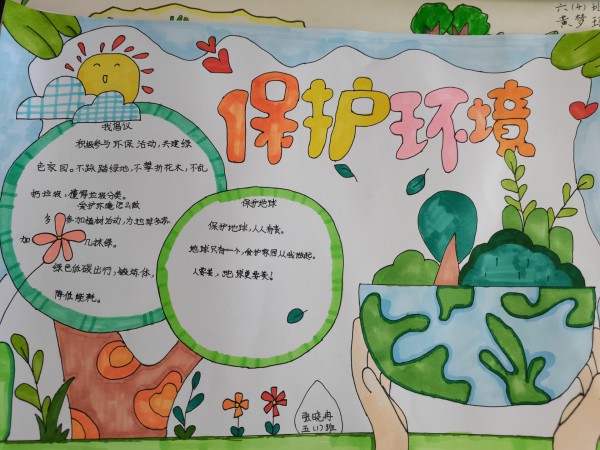 保护环境
我倡议
积极参与环保活动,共建绿
色家园。不踩踏绿地,不攀折花木,不乱
扔垃圾,懂得垃圾分类。
爱护环境怎么做
参加植树活动,为地球多添
加 几抹绿。
绿色低碳出行,锻炼体,
降低能耗。
保护地球
保护地球,人人有责。
地球只有一个,爱护家园从我做起。
人要美,地球更要美!
张晓冉
五(1)班
六(4)班
黄梦